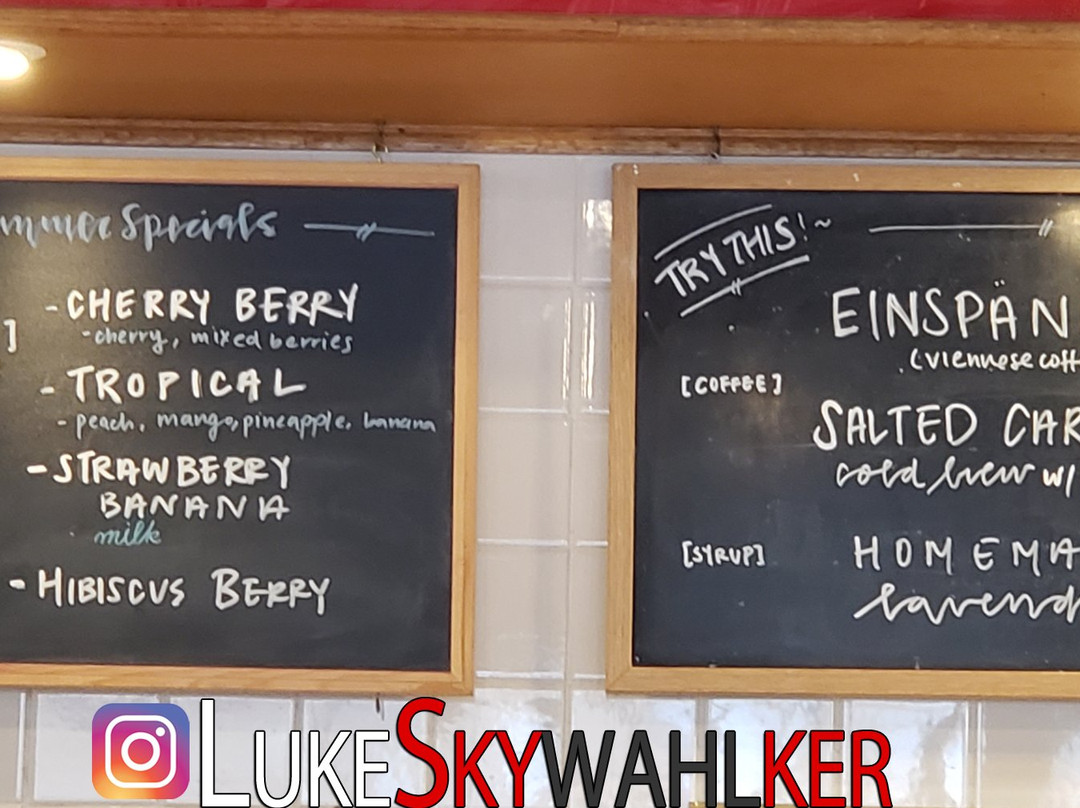 mmer Specials
- CHERRY BERRY
- cherry, mixed berries
]
- TROPICAL
- peach, mango, pineapple, banana
- STRAWBERRY
BANANA
milk
- HIBISCUS BERRY
TRY THIS! ~
EINSPÄN
(viennese coff
[COFFEE]
SALTED CAR
cold brew w/
[SYRUP]
HOMEMA
lavend
LUKESKYWAHLKER